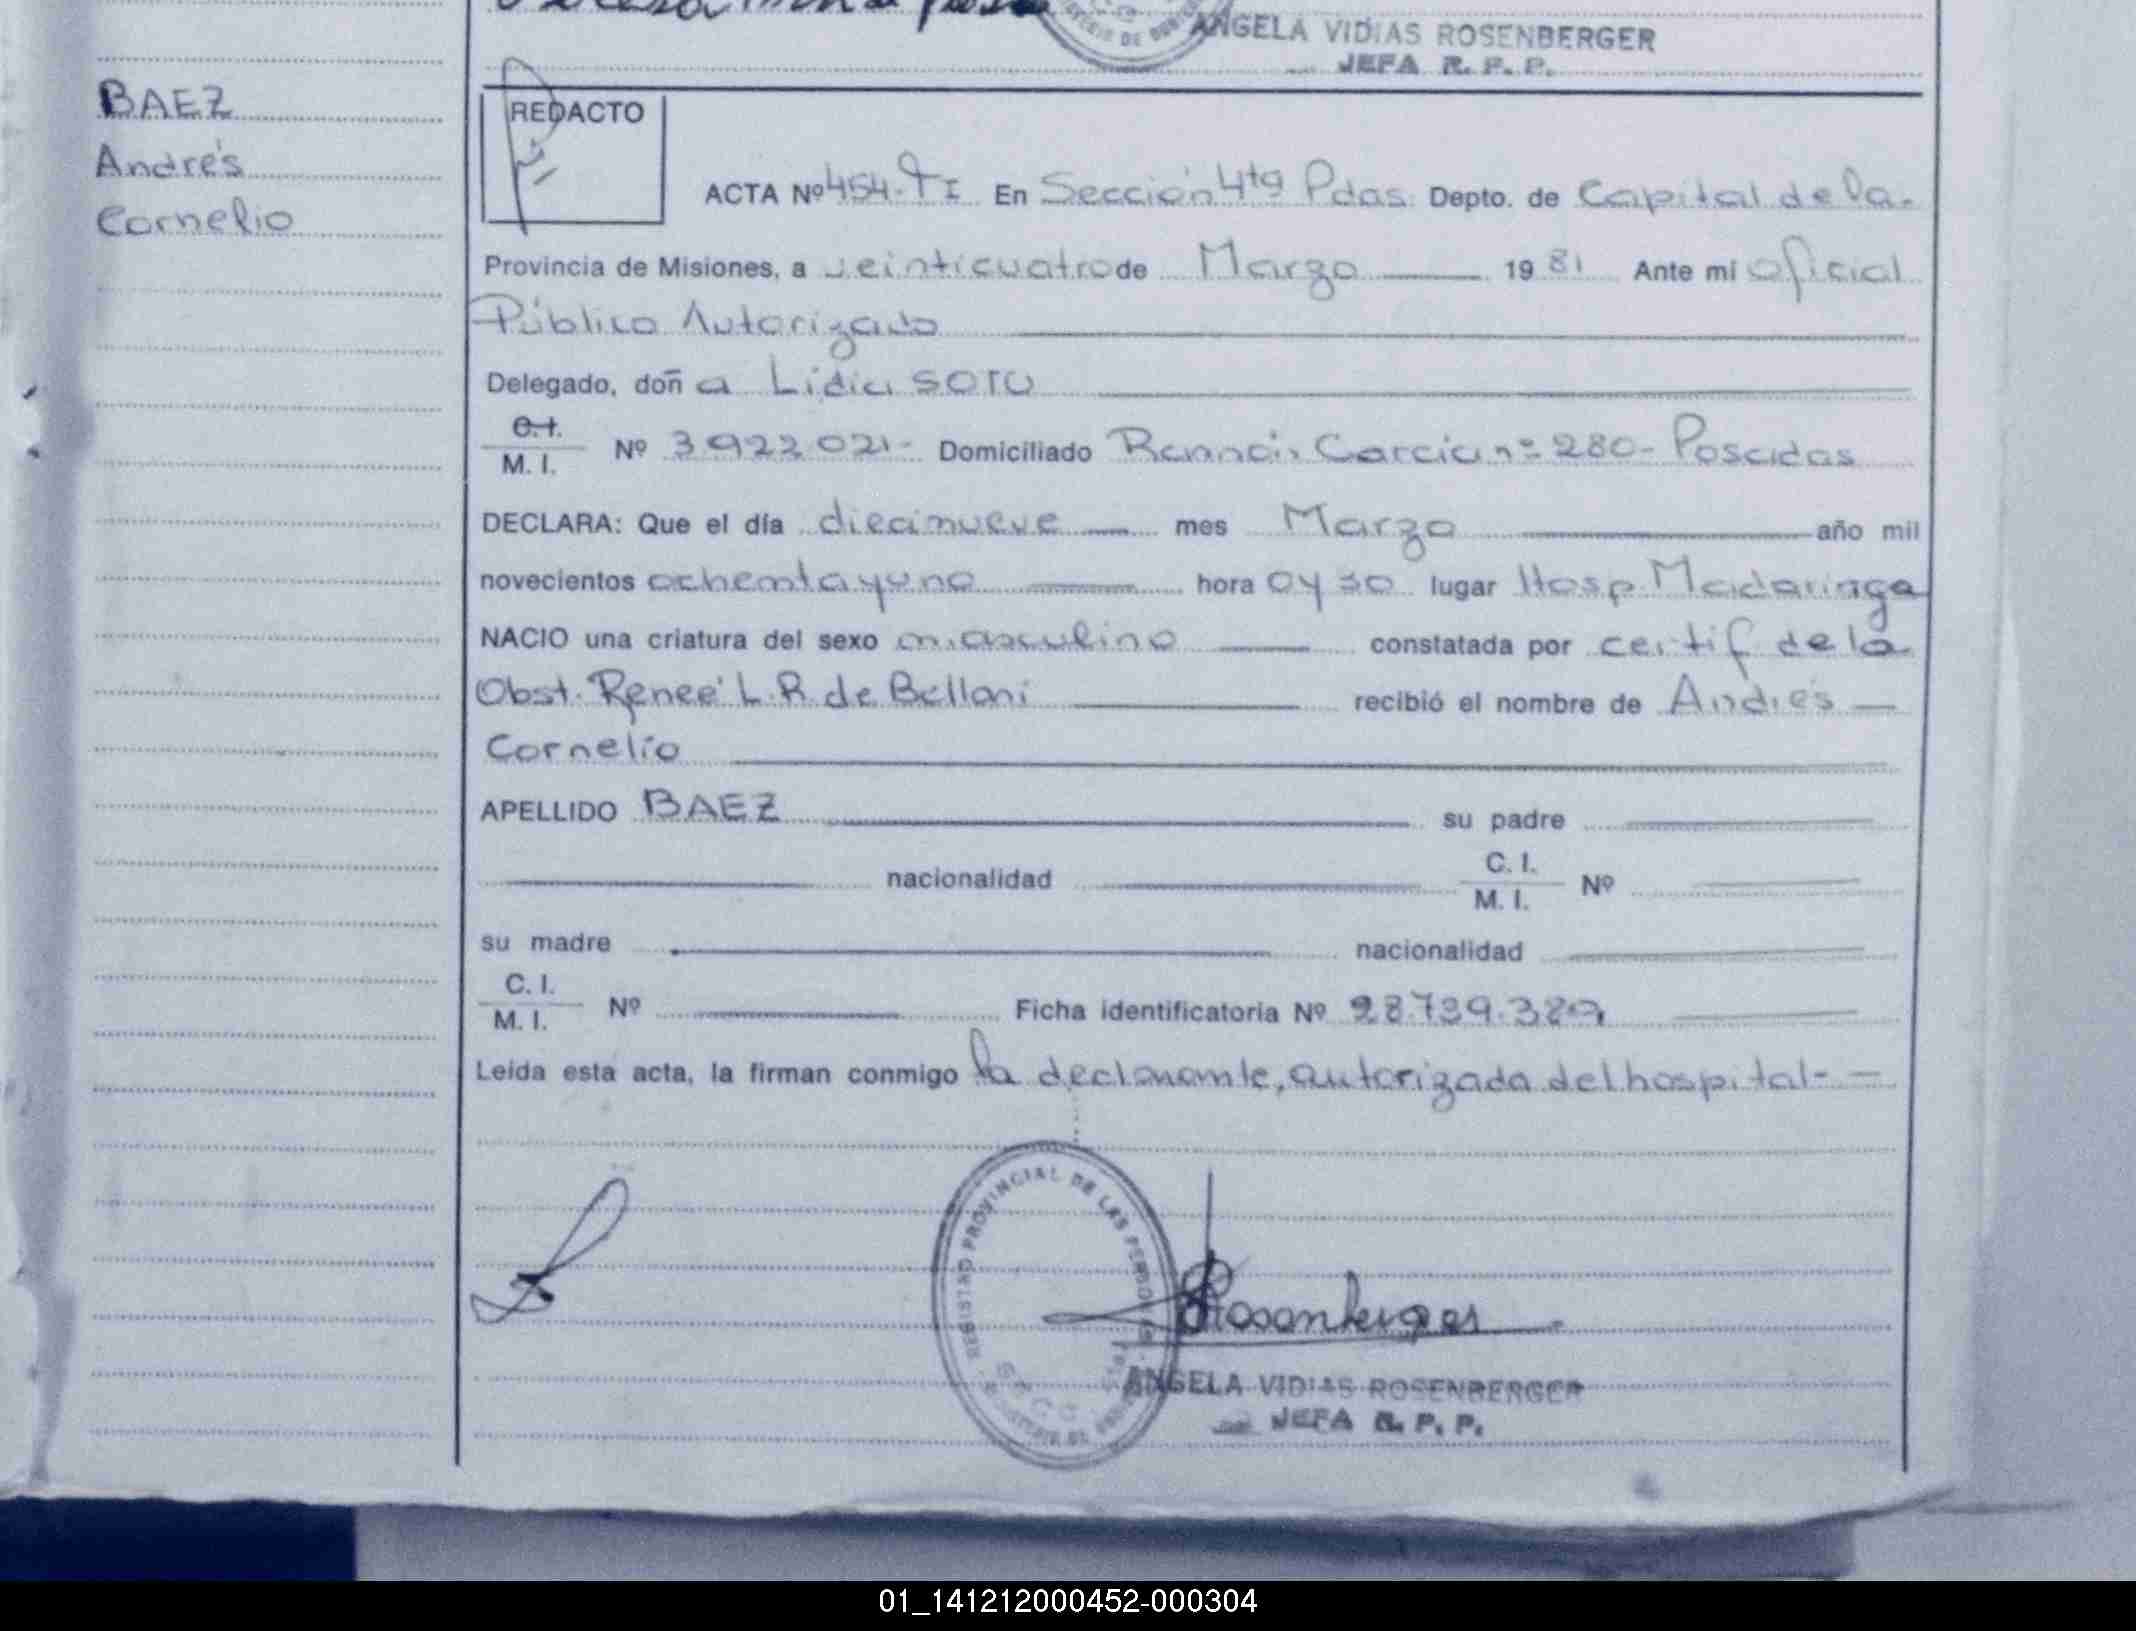 ANGELA VIDIAS ROSENBERGER
JEFA R. P. P.
BAEZ
Andrés
Cornelio
REDACTO
ACTA Nº 454-TI En Sección 4ta Pdas. Depto. de Capital de la
Provincia de Misiones, a veinticuatro de Marzo 1981 Ante mi oficial
Público Autorizado
Delegado, doña Lidia SOTO
C.I. M. I. Nº 3922021- Domiciliado Ramón García nº 280- Posadas
DECLARA: Que el día diecinueve mes Marzo año mil
novecientos ochenta y uno hora 04 30 lugar Hosp. Madariaga
NACIO una criatura del sexo masculino constatada por certif de la
Obst. Reneé L. R. de Belloni recibió el nombre de Andrés
Cornelio
APELLIDO BAEZ su padre
nacionalidad C. I. M. I. Nº
su madre nacionalidad
C. I. M. I. Nº Ficha identificatoria Nº 28.739.389
Leída esta acta, la firman conmigo la declarante, autorizada del hospital- -
REGISTRO PROVINCIAL DE LAS PERSONAS
Rosenberger
ANGELA VIDIAS ROSENBERGER
JEFA R. P. P.
01_141212000452-000304